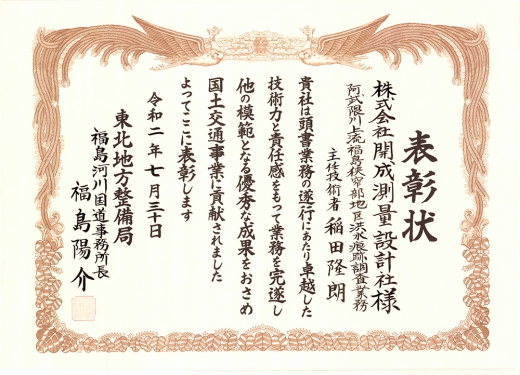 表彰状
株式会社 開成測量設計社様
阿武隈川上流福島狭窄部地区洪水痕跡調査業務
主任技術者 稲田隆朗
貴社は頭書業務の遂行にあたり卓越した
技術力と責任感をもって業務を完遂し
他の模範となる優秀な成果をおさめ
国土交通事業に貢献されました
よってここに表彰します
令和二年七月三十日
東北地方整備局
福島河川国道事務所長
福島陽介